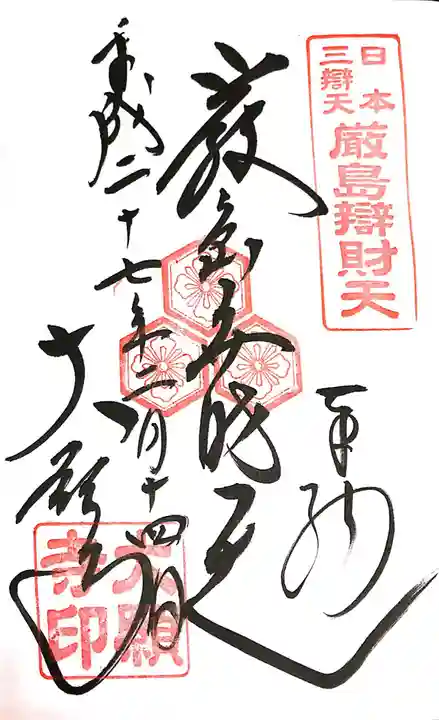 日本
三辯天
厳島辯財天
奉拝
厳島弁財天
平成二十七年二月十四日
大願寺
大願
寺印